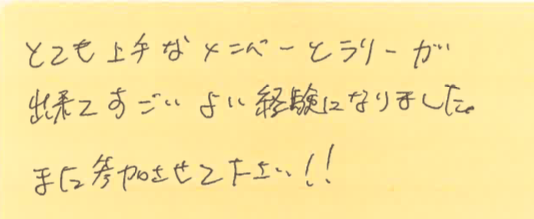 とても上手なメンバーとラリーが
出来てすごいよい経験になりました。
また参加させて下さい!!